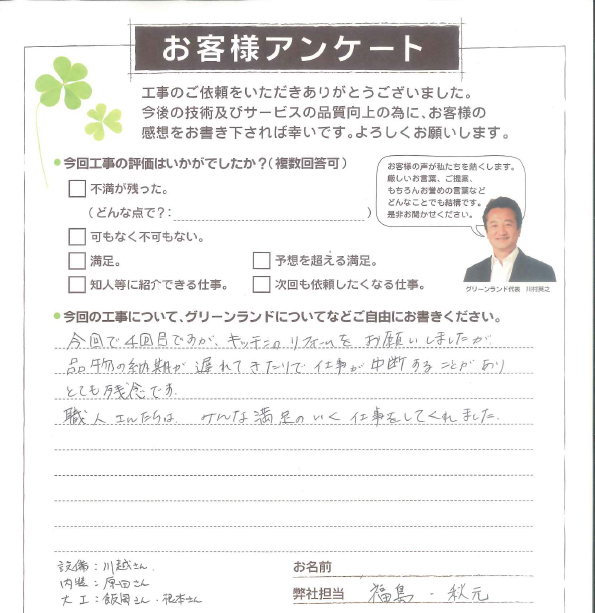 お客様アンケート
工事のご依頼をいただきありがとうございました。
今後の技術及びサービスの品質向上の為に、お客様の
感想をお書き下されば幸いです。よろしくお願いします。
今回工事の評価はいかがでしたか?(複数回答可)
不満が残った。
(どんな点で?:                )
可もなく不可もない。
満足。
予想を超える満足。
知人等に紹介できる仕事。
次回も依頼したくなる仕事。
お客様の声が私たちを熱くします。
厳しいお言葉、ご提案、
もちろんお誉めの言葉など
どんなことでも結構です。
是非お聞かせください。
グリーンランド代表
今回の工事について、グリーンランドについてなどご自由にお書きください。
今回で4回目ですが、キッチンのリフォームをお願いしましたが
品物の納期が遅れてきたりで仕事が中断することがあり
とても残念です.
職人さんたちは、みんな満足のいく仕事をしてくれました.
設備:川越さん
内装:原田さん
大工:飯岡さん・根本さん
お名前
弊社担当 福島・秋元